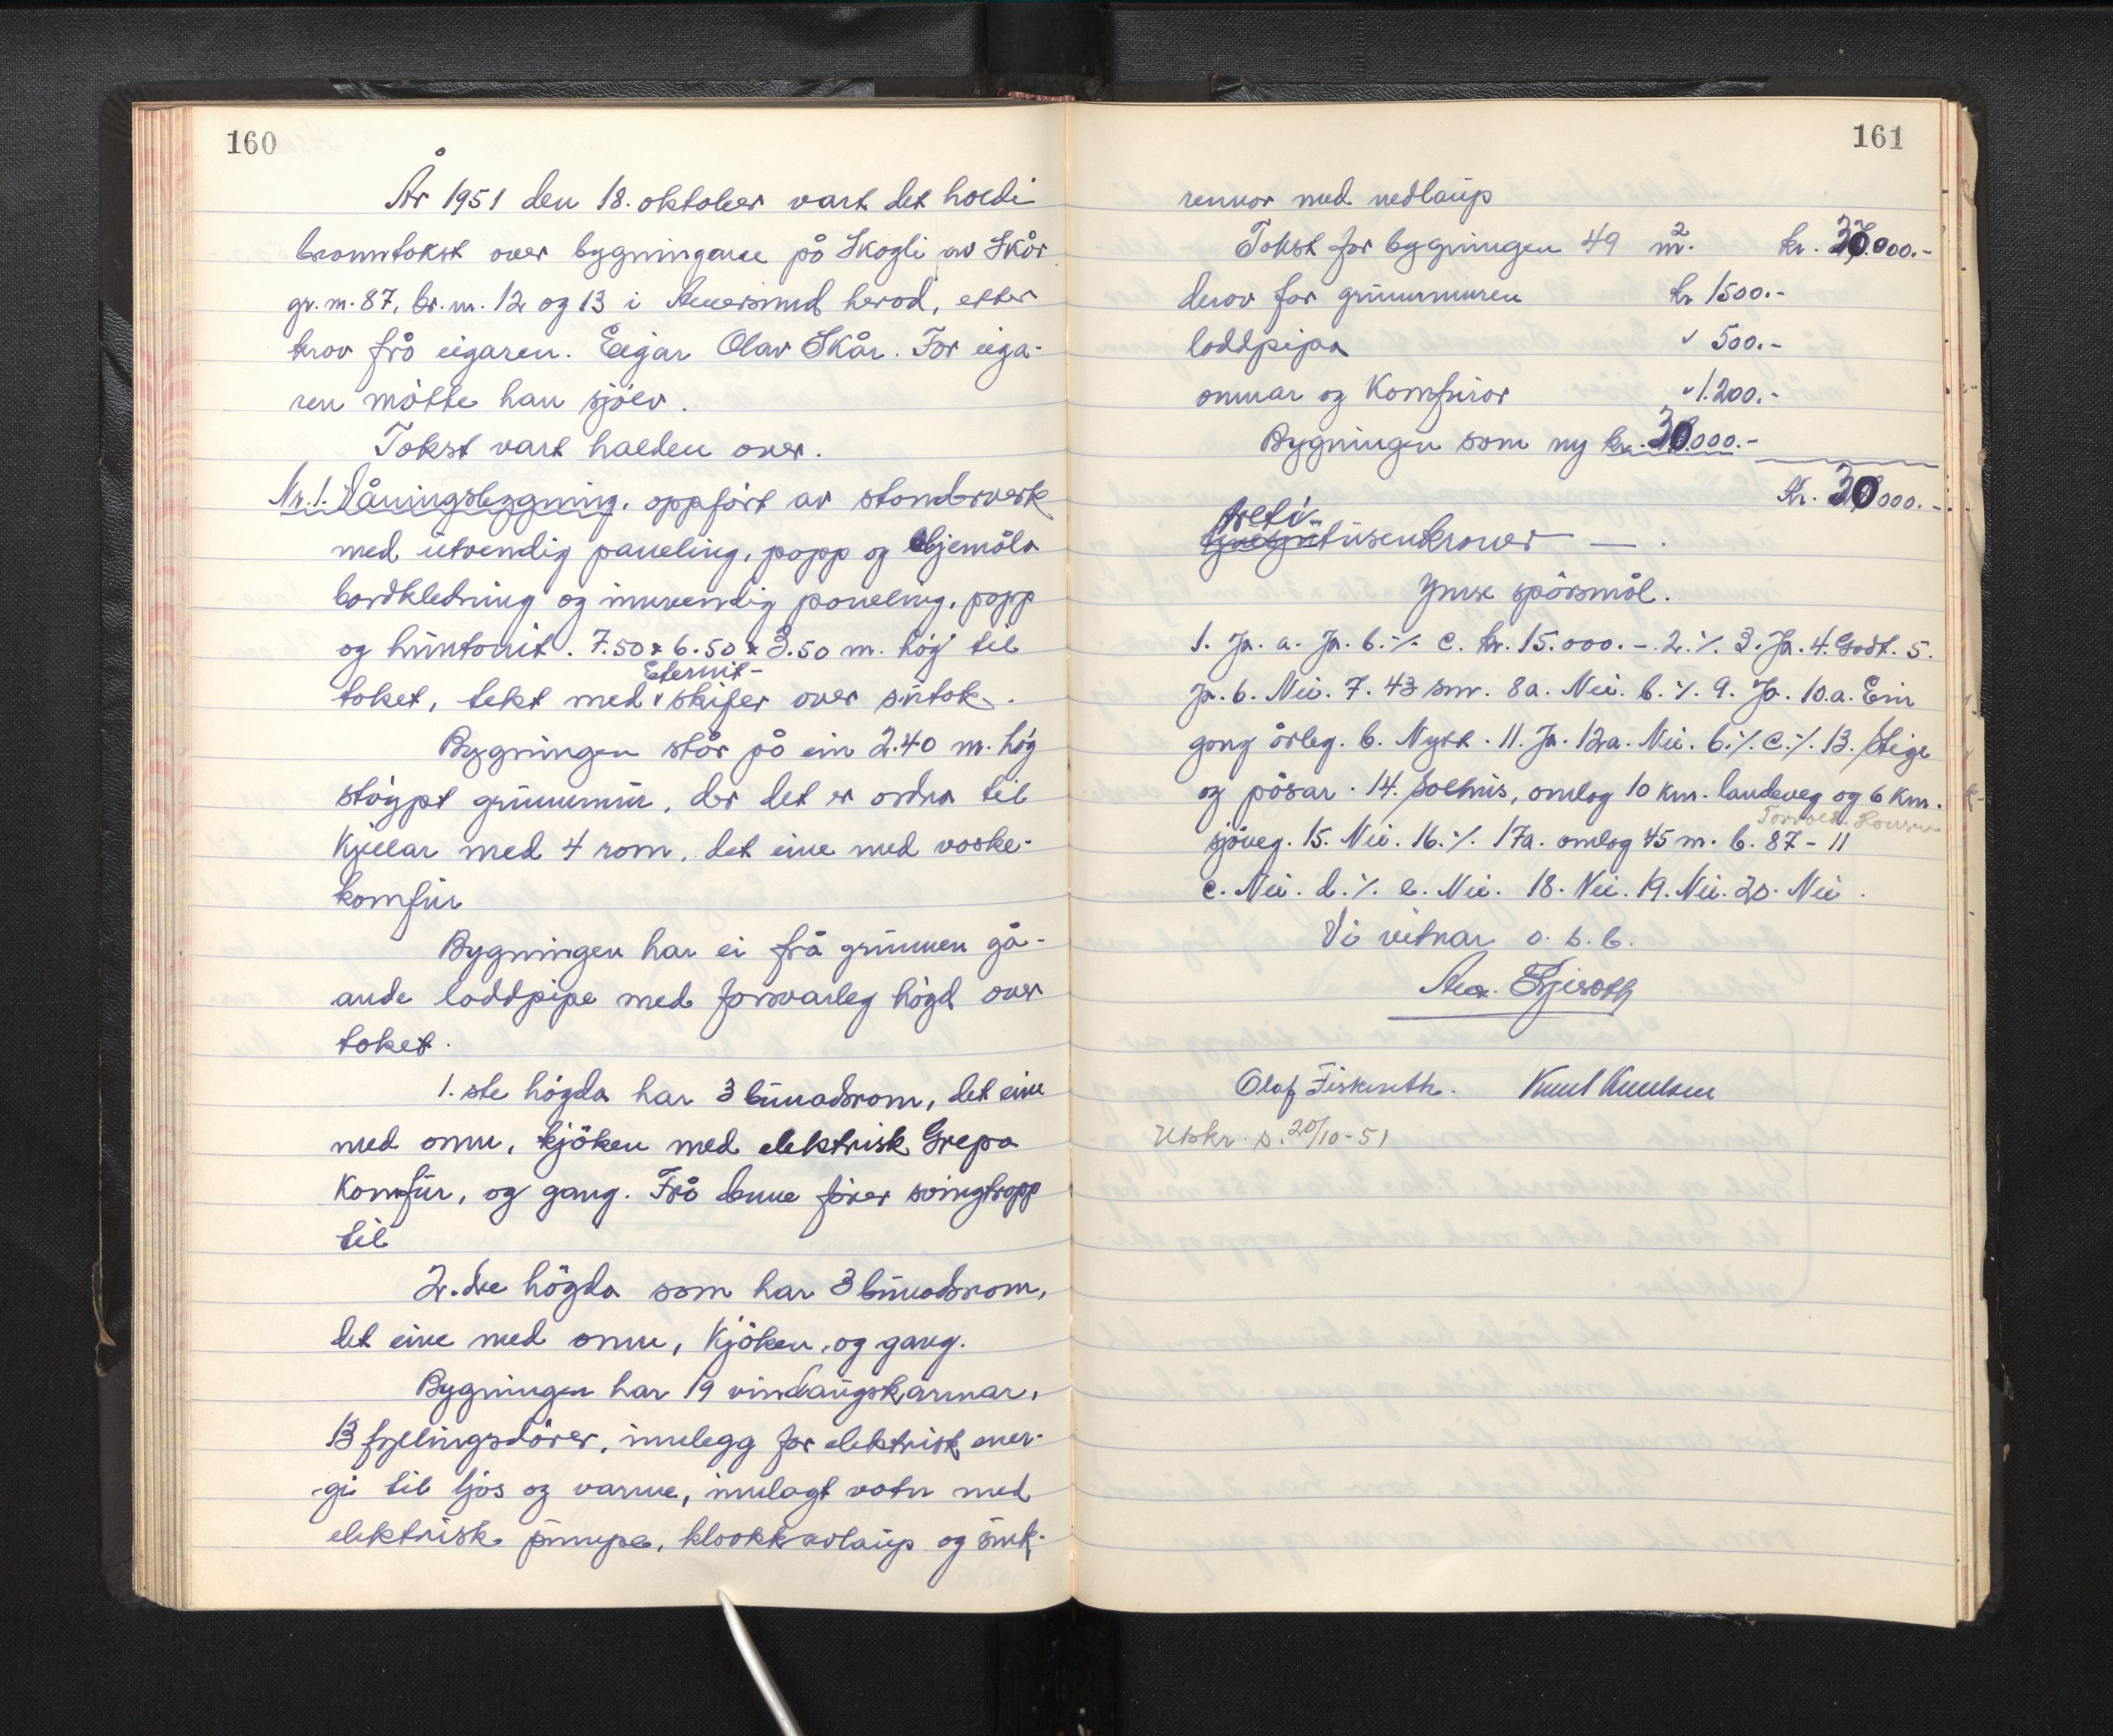 160
År 1951 den 18. oktober vart det holdi
branntakst over bygningane på Skogli av Skår
gr. nr. 87, br. nr. 12 og 13 i herad, etter
krav frå eigaren. Eigar Olav Skår. For eiga-
ren møtte han sjølv.
Takst vart halden over.
Nr. 1. Våningsbygning, oppført av standerverk
med utvendig paneling, papp og høljemåla
bordkledning og innvendig paneling, papp
og huntonit. 7.50 x 6.50 x 3.50 m. høg til
Eternit-
taket, tekt med skifer over sutak.
Bygningen står på ein 2.40 m. høg
støypt grunnmur, der det er ordna til
Kjellar med 4 rom, det eine med vaske-
komfur
Bygningen har ei frå grunnen gå-
ande loddpipe med forsvarleg høgd over
taket.
1. ste høgda har 3 bunadsrom, det eine
med omn, kjøken med elektrisk Grepa
Komfur, og gang. Frå denne fører svingtrapp
til
2. dre høgda som har 3 bunadsrom,
det eine med omn, Kjøken, og gang.
Bygningen har 19 vindaugskarmar,
13 fyllingsdører, innlegg for elektrisk ener-
gi til ljos og varme, innlagt vatn med
elektrisk pumpe, kloakkavlaup og sink-
161
rennor med nedlaup
Takst for bygningen 49 m². kr. 30.000.-
derav for grunnmuren kr 1500.-
loddpipa " 500.-
omnar og Komfuror " 1.200.-
Bygningen som ny kr. 30.000.-
Kr. 30000.-
treti
tusenkroner — .
Ymse spørsmål.
1. Ja. a. Ja. b. ٪. c. kr. 15.000.-. 2. ٪. 3. Ja. 4. Godt. 5.
Ja. 6. Nei. 7. 43 smr. 8a. Nei. b. ٪. 9. Ja. 10.a. Ein
gong årleg. b. Nytt. 11. Ja. 12a. Nei. b. ٪. c. ٪. 13. Stige
og pøsar. 14. Solhus, omlag 10 km. landeveg og 6 km.
Torvald
sjøveg. 15. Nei. 16. ٪. 17a. omlag 45 m. b. 87 - 11
c. Nei. d. ٪. e. Nei. 18. Nei. 19. Nei. 20. Nei.
Vi vitnar o. s. b.
Olaf Fiskereth. Knut Knutsen
Utskr. s. 20/10-51